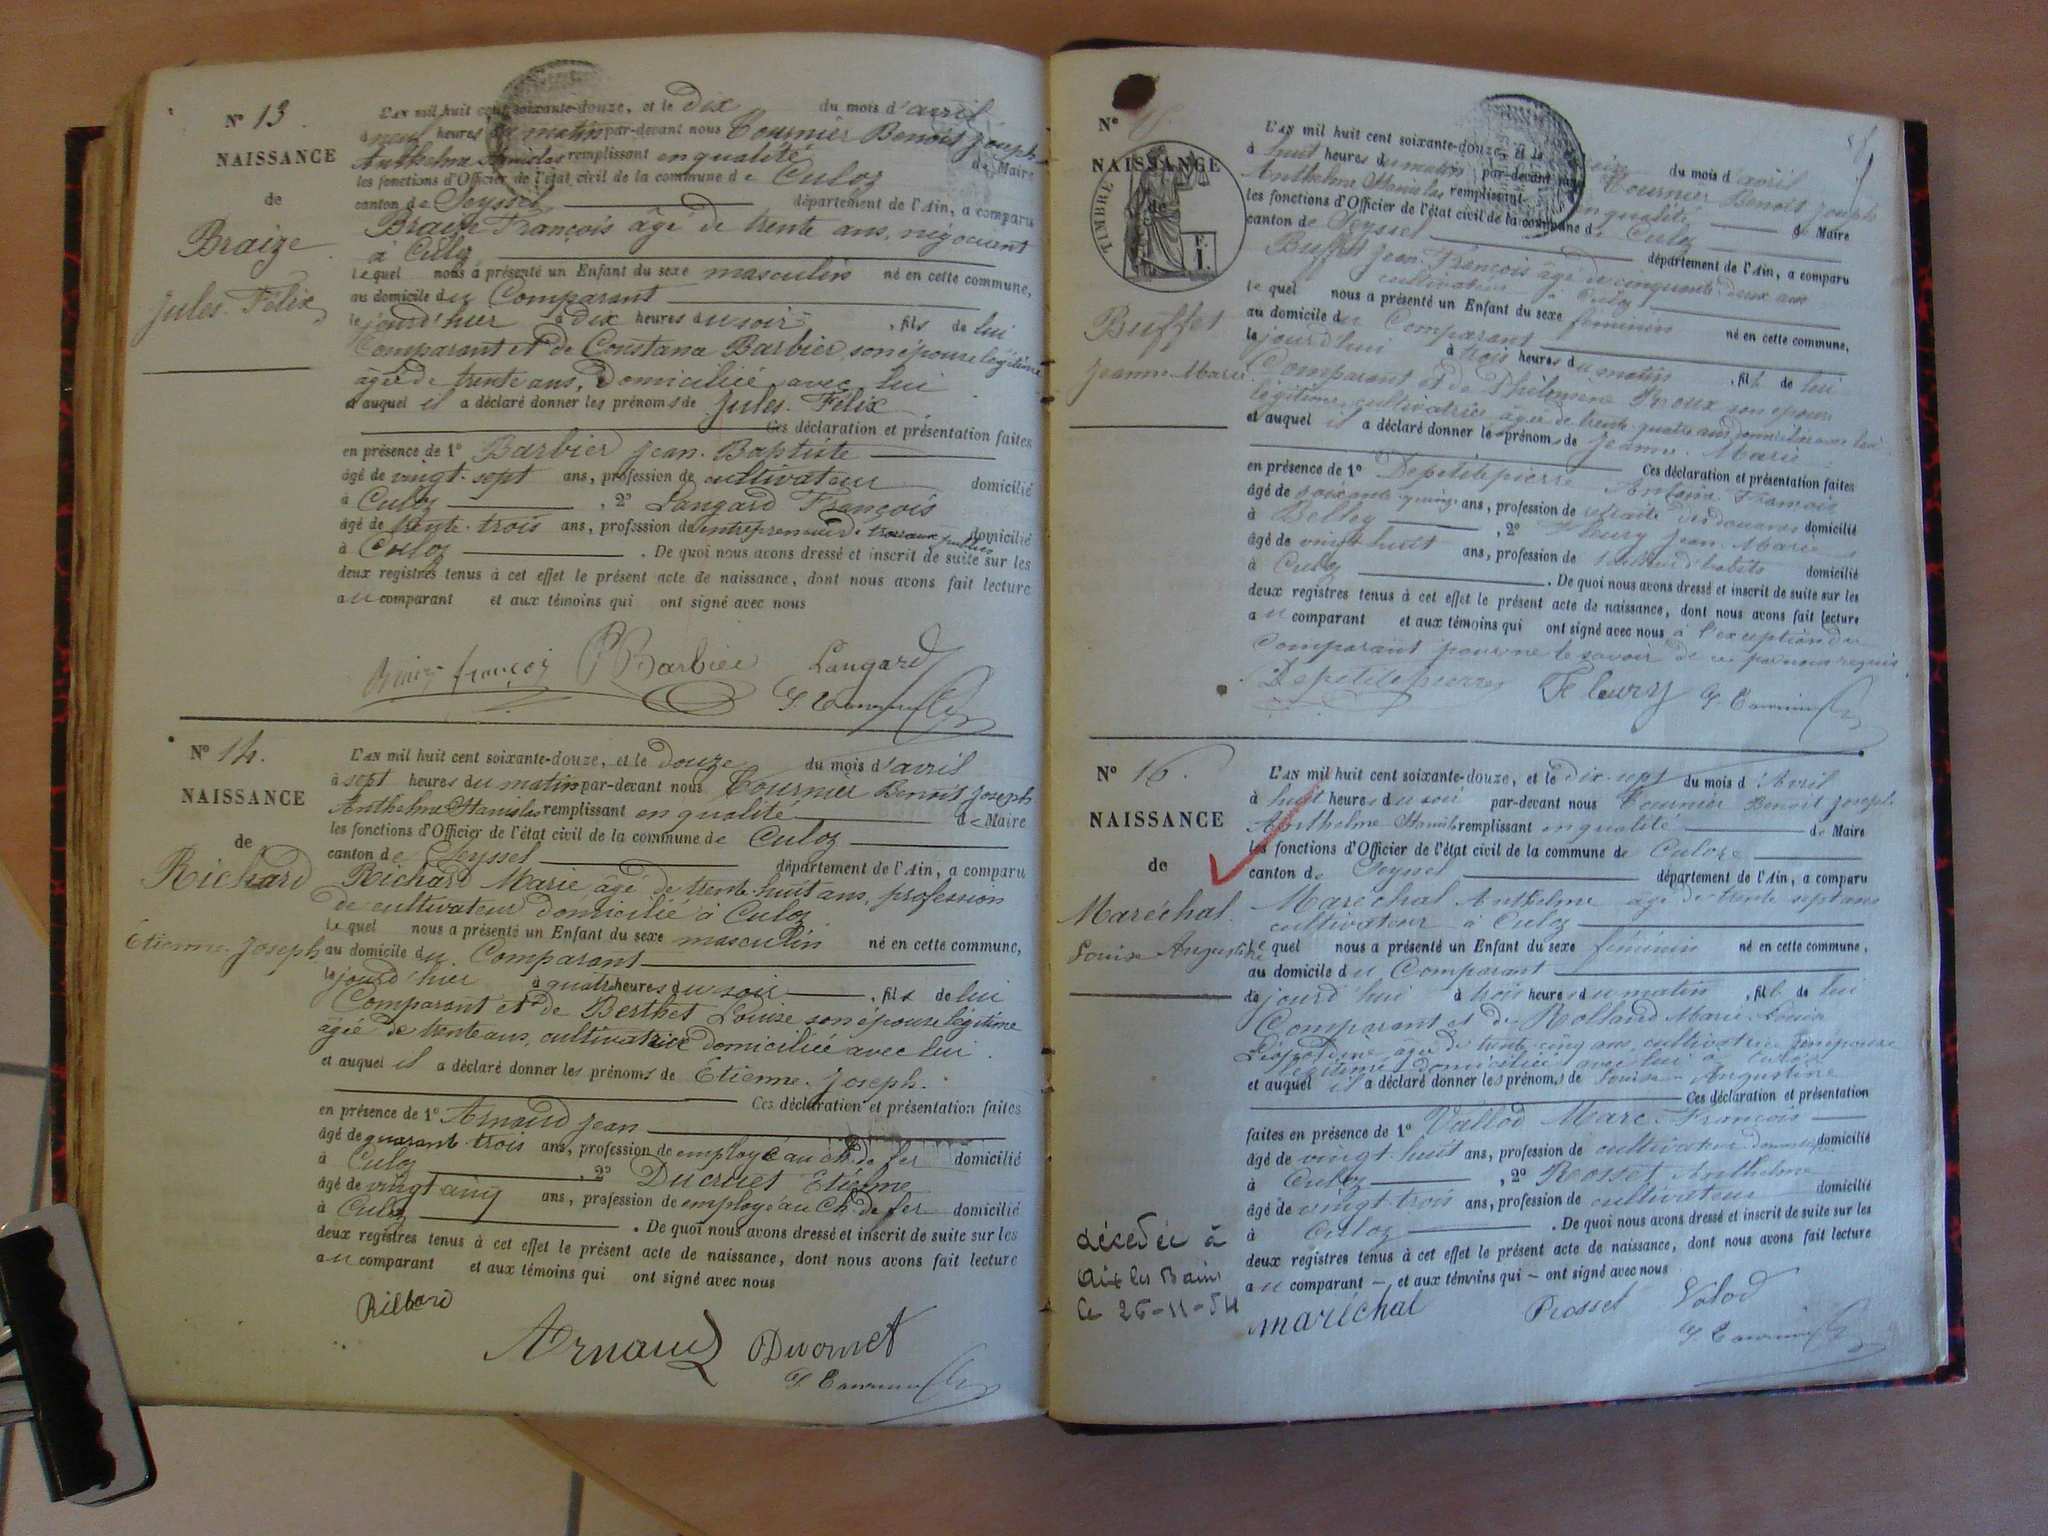 N° 13
NAISSANCE
de
Braize
Jules Félix
L'AN mil huit cent soixante-douze, et le dix du mois d'avril
à neuf heures du matin par-devant nous Tournier Benoit Joseph
Anthelme Stanislas remplissant en qualité de Maire
les fonctions d'Officier de l'état civil de la commune de Culoz
canton de Seyssel département de l'Ain, a comparu
Braize François âgé de trente ans, négociant
à Culoz
lequel nous a présenté un Enfant du sexe masculin né en cette commune,
au domicile du Comparant
le jourd'hier à dix heures du soir, fils de lui
Comparant et de Barbier son épouse légitime
âgée de trente ans, domiciliée avec lui
et auquel il a déclaré donner les prénoms de Jules Félix
Ces déclaration et présentation faites
en présence de 1° Barbier Jean Baptiste
âgé de vingt-sept ans, profession de cultivateur domicilié
à Culoz, 2° Langard François
âgé de trente-trois ans, profession de entrepreneur de travaux publics domicilié
à Culoz. De quoi nous avons dressé et inscrit de suite sur les
deux registres tenus à cet effet le présent acte de naissance, dont nous avons fait lecture
au comparant et aux témoins qui ont signé avec nous
françois Barbier Langard
N° 14.
NAISSANCE
de
Richard
Etienne Joseph
L'AN mil huit cent soixante-douze, et le douze du mois d'avril
à sept heures du matin par-devant nous Tournier Benoit Joseph
Anthelme Stanislas remplissant en qualité de Maire
les fonctions d'Officier de l'état civil de la commune de Culoz
canton de Seyssel département de l'Ain, a comparu
Richard Marie âgé de trente-huit ans, profession
de cultivateur domicilié à Culoz
lequel nous a présenté un Enfant du sexe masculin né en cette commune,
au domicile du Comparant
le jourd'hier à quatre heures du soir, fils de lui
Comparant et de Berthet Louise son épouse légitime
âgée de trente ans, cultivatrice domiciliée avec lui.
et auquel il a déclaré donner les prénoms de Etienne Joseph.
Ces déclaration et présentation faites
en présence de 1° Arnaud Jean
âgé de quarante-trois ans, profession de employé au ch. de fer domicilié
à Culoz, 2° Ducruet Etienne
âgé de vingt cinq ans, profession de employé au Ch. de fer domicilié
à Culoz. De quoi nous avons dressé et inscrit de suite sur les
deux registres tenus à cet effet le présent acte de naissance, dont nous avons fait lecture
au comparant et aux témoins qui ont signé avec nous
Arnaud
N°
NAISSANCE
de
TIMBRE
Buffet
Jeanne Marie
L'AN mil huit cent soixante-douze, et le du mois d'avril
à huit heures du matin par-devant nous Tournier Benoit Joseph
Anthelme Stanislas remplissant en qualité de Maire
les fonctions d'Officier de l'état civil de la commune de Culoz
canton de Seyssel département de l'Ain, a comparu
Buffet Jean François âgé de cinquante-deux ans
cultivateur à Culoz
lequel nous a présenté un Enfant du sexe féminin né en cette commune,
au domicile du Comparant
le jourd'hui à trois heures du matin, fille de lui
Comparant et de Philomène Roux son épouse
légitime, cultivatrice âgée de trente-quatre ans domiciliée avec lui
et auquel il a déclaré donner les prénoms de Jeanne Marie
Ces déclaration et présentation faites
en présence de 1° Depetitepierre Antoine François
âgé de soixante-quinze ans, profession de retraité des douanes domicilié
à Belley, 2° Fleury Jean Marie
âgé de vingt-huit ans, profession de tailleur d'habits domicilié
à Culoz. De quoi nous avons dressé et inscrit de suite sur les
deux registres tenus à cet effet le présent acte de naissance, dont nous avons fait lecture
au comparant et aux témoins qui ont signé avec nous à l'exception du
Comparant pour ne le savoir de ce par nous requis
Depetitepierre Fleury
N° 16.
NAISSANCE
de
Maréchal
Louise Augustine
L'AN mil huit cent soixante-douze, et le dix-sept du mois d'Avril
à huit heures du soir par-devant nous Tournier Benoit Joseph
Anthelme Stanislas remplissant en qualité de Maire
les fonctions d'Officier de l'état civil de la commune de Culoz
canton de Seyssel département de l'Ain, a comparu
Maréchal Anthelme âgé de trente sept ans
cultivateur à Culoz
lequel nous a présenté un Enfant du sexe féminin né en cette commune,
au domicile du Comparant
le jourd'hui à trois heures du matin, fille de lui
Comparant et de Rolland Marie Louise
âgée de trente-cinq ans, cultivatrice son épouse
légitime domiciliée avec lui à Culoz
et auquel il a déclaré donner les prénoms de Louise Augustine
Ces déclaration et présentation
faites en présence de 1° Vallod Marc François
âgé de vingt-huit ans, profession de cultivateur domicilié
à Culoz, 2° Rosset Anthelme
âgé de vingt-trois ans, profession de cultivateur domicilié
à Culoz. De quoi nous avons dressé et inscrit de suite sur les
deux registres tenus à cet effet le présent acte de naissance, dont nous avons fait lecture
au comparant, et aux témoins qui ont signé avec nous
maréchal Rosset Valod
décédée à
Aix les Bains
le 26-11-54